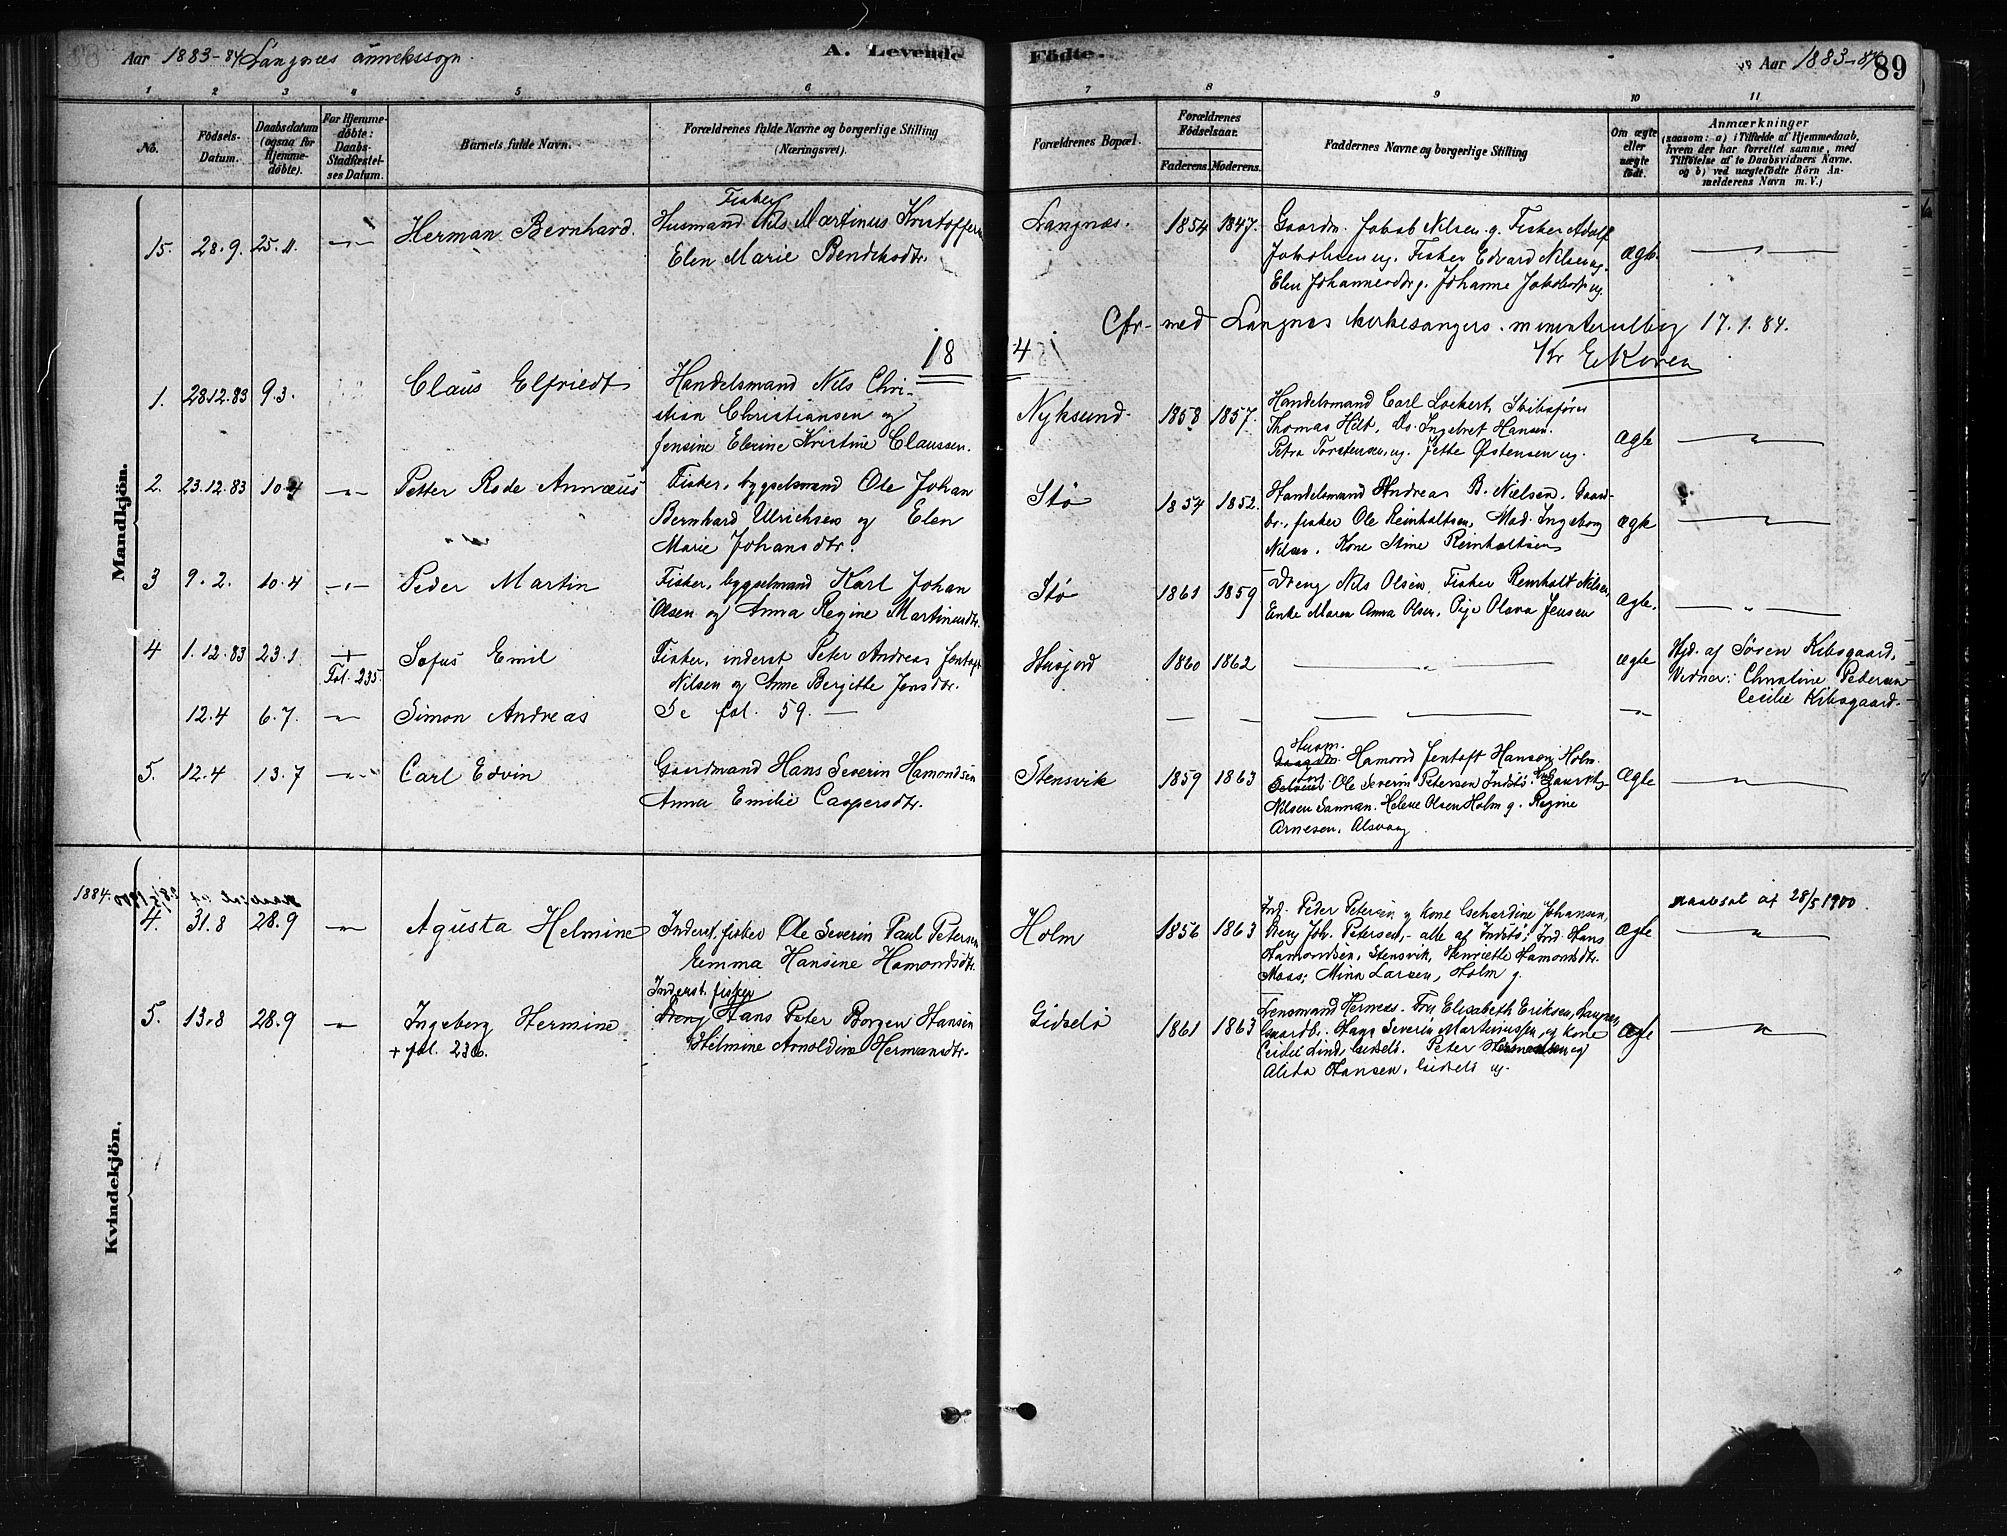 Aar 1883-84 Langnes annekssogn.
A. Levende Fødte.
Aar 1883-84
89
1 2 3 4 5 6 7 8 9 10 11
No.
Födsels-Datum.
Daabsdatum (ogsaa for Hjemme-döbte).
For Hjemme-döbte: Daabs-Stadfæstel-ses Datum.
Barnets fulde Navn.
Forældrenes fulde Navne og borgerlige Stilling (Næringsvei).
Forældrenes Bopæl.
Forældrenes Födselsaar.
Faderens. Moderens.
Faddernes Navne og borgerlige Stilling
Om ægte eller uægte födt.
Anmærkninger
(saasom: a) i Tilfælde af Hjemmedaab, hvem der har forrettet samme, med Tilföielse af to Daabsvidners Navne, og b) ved uægtefödte Börn Anmelderens Navn m. V.)
Mandkjön.
15. 28.9. 25.11. Herman Bernhard.
Fisker
Husmand Nils Martinus Kristoffersen
Elen Marie Bendiksdtr.
Langnæs. 1854 1847.
Gaardm. Jakob Nilsen g. Fisker Adolf
Jakobsen ug. Fisker Edvard Nilsen ug.
Elen Johannesdtr g. Johanne Jakobsdtr ug.
ægte
Cfr. med Langnes kirkesangers ministerialbog 17.1.84.
Kr E Koren
18 4
1. 28.12.83 9.3. Claus Elfriedt
Handelsmand Nils Chri-
stian Christiansen og
Jensine Elerine Kristine Claussen.
Nyksund. 1858 1857.
Handelsmand Carl Lockert, Skibsfører
Thomas Hilt, Ingebret Hansen.
Petra Torstensen, ug. Jette Østensen ug.
ægte
2. 23.12.83 10.4 Petter Rode Annæus
Fisker, bygselmand Ole Johan
Bernhard Ulrichsen og Elen
Marie Johansdtr.
Stø 1854 1852.
Handelsmand Andreas B. Nielsen. Gaard-
br., fisker Ole Reinholtsen, Mad. Ingeborg
Nilsen. Kone Stine Reinholtsen
ægte
3 9.2. 10.4 Peder Martin
Fisker, bygselmand Karl Johan
Olsen og Anna Regine Martinusdtr.
Stø 1861 1859
Dreng Nils Olsen, Fisker Reinholt Nilsen
Enke Maren Anna Olsen, Pige Olava Jensen
ægte.
4 1.12.83 23.1 + Fol. 235. Sofus Emil
Fisker, inderst Peter Andreas Jentoft
Nilsen og Anne Bergitte Jensdtr.
Husjord 1860 1862
ægte
Hjd. af Søren Kibsgaard,
Vidner: Christine Pedersen
Cecilie Kibsgaard.
12.4 6.7. Simon Andreas
Se fol. 59.
5. 12.4 13.7 Carl Edvin
Gaardmand Hans Severin Hamondsen
Anna Emilie Caspersdtr.
Stensvik 1859 1863
Husm.
Hamond Jentoft Hansen, Holm.
Ole Severin Petersen Indstø.
Nilsen Sannan. Helene Olsen Holm g. Regine
Arnesen, Alsvaag
ægte
Kvindekjön.
1884.
4. 31.8 28.9 Agusta Helmine
Inderst, fisker Ole Severin Paul Petersen
Emma Hansine Hamondsdtr.
Holm 1856 1863
Ind. Peder Petersen g kone Gerhardine Johansen,
Dreng Joh. Petersen, - alle af Indstø; Ind. Hans
Hamondsen, Stensvik, Henriette Hamondsdtr.
Maas; Mina Larsen, Holm g.
ægte
28/5 1900.
5. 13.8 28.9 Ingeborg Hermine
+ fol. 236.
Inderst. fisker
Dreng Hans Peter Borgen Hansen
Helmine Arnoldine Hermansdtr.
Gidselø 1861 1863
Lensmand Hermes. Fru Elisabeth Eriksen,
Gaardb. Hags Severin Martinussen og kone
Cecilie Lind, Gidselø. Peter Hermansen og
Alida Hansen, Gidselø ug.
ægte